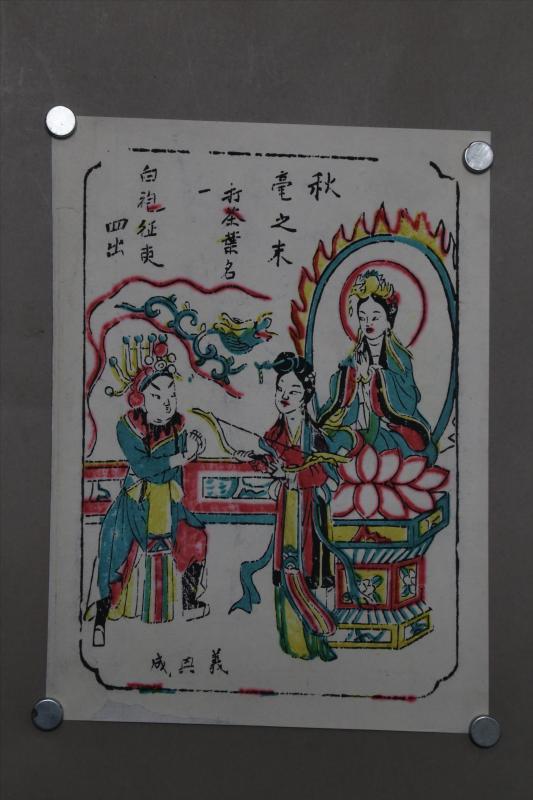 秋
毫之末
打茶葉名
一
白袍征東
四出
義興成